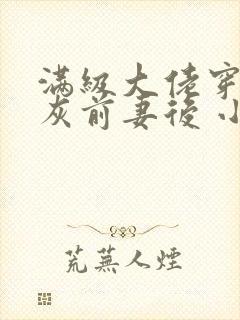 滿級大佬穿
灰前妻後小
荒蕪人煙